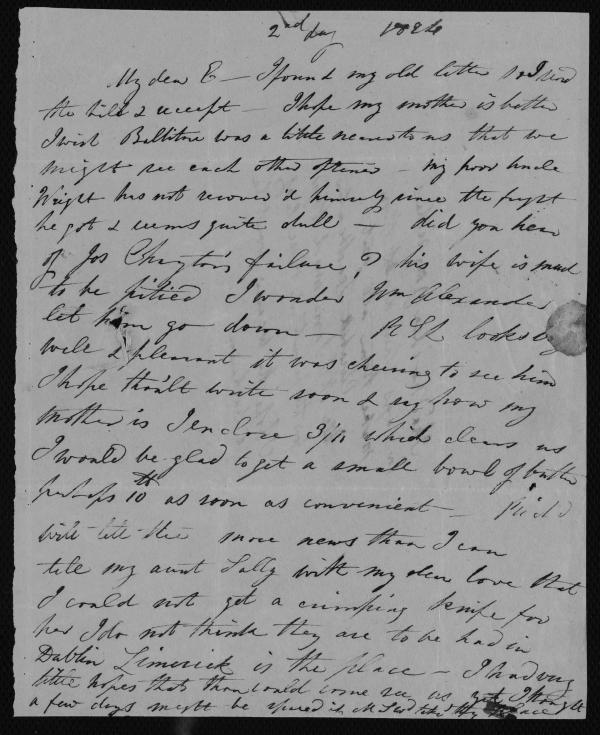 2nd day 1824
My dear E — I found my old letter so I send
the bill & receipt — I hope my mother is better
I wish Ballitore was a little nearer to us that we
might see each other oftener — my poor uncle
Wright has not recover'd himself since the fright
he got & seems quite dull — did you hear
of Jos Clayton's failure? his wife is much
to be pitied I wonder Wm Alexander
let him go down — looks
well & pleasant it was cheering to see him
I hope thou'lt write soon & say how my
mother is I enclose 3/11 which clears us
I would be glad to get a small bowl of butter
perhaps 10 lb as soon as convenient — Rich'd
will tell thee more news than I can
tell my aunt Sally with my dear love that
I could not get a crimping knife for
her I do not think they are to be had in
Dublin Limerick is the place — I had very
little hopes that thou could come see us yet I thought
a few days might be spared if